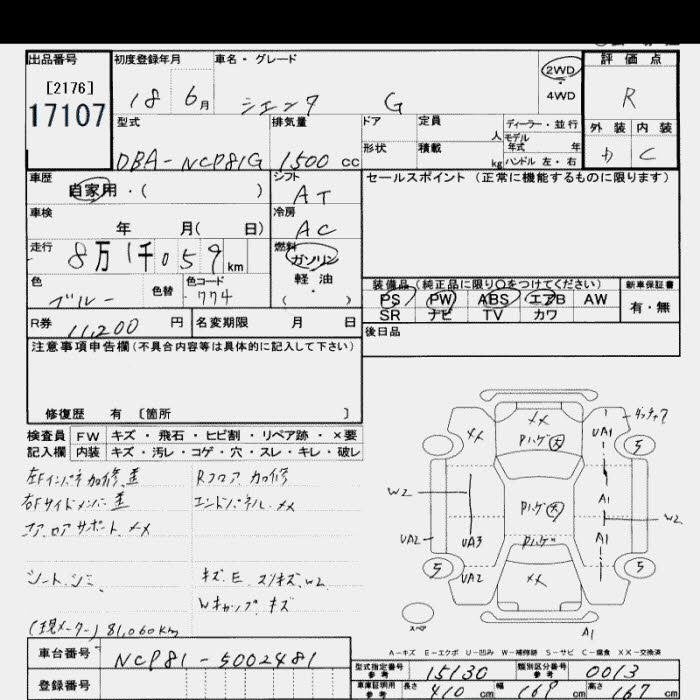 出品番号 初度登録年月 車名・グレード 評価点
[2176] 2WD
17107 18 6月 シエンタ G 4WD R
型式 排気量 ドア 定員 人 ディーラー・並行 外装 内装
DBA-NCP81G 1500 cc 形状 積載 kg モデル年式 年 ハンドル 左・右 D C
車歴 シフト セールスポイント (正常に機能するものに限ります)
自家用・( ) AT
車検 冷房
年 月( 日) AC
走行 燃料
8万1千059 km ガソリン
色 色替 色コード 軽・油
ブルー 774 ( )
装備品 (純正品に限り○をつけてください) 新車保証書
PS PW ABS エアB AW 有・無
SR ナビ TV カワ
R券 11,200 円 名変期限 月 日 後日品
注意事項申告欄(不具合内容等は具体的に記入して下さい)
修復歴 有 〔箇所 〕
検査員 FW キズ・飛石・ヒビ割・リペア跡・×要
記入欄 内装 キズ・汚レ・コゲ・穴・スレ・キレ・破レ
左Fインパネ加修、歪 Rフロア加修
右Fサイドメンバー歪 エンドパネル××
コア、ロアサポート××
シート、シミ キズ、E スリキズ、W2
Wキャップ キズ
(現メーター) 81,060km
×× ×× UA1 タッチア
Pハゲ 大 5
W2 A1
Pハゲ 大 W2
UA2 UA3 Pハゲ A1
5 UA2 ×× 5
スペア A1
A-キズ E-エクボ U-凹み W-補修跡 S-サビ C-腐食 XX-交換済
車台番号 NCP81-5002481 型式指定番号 参考 15130 類別区分番号 参考 0013
登録番号 車庫証明用 参考 長さ 410 cm 幅 169 cm 高さ 167 cm